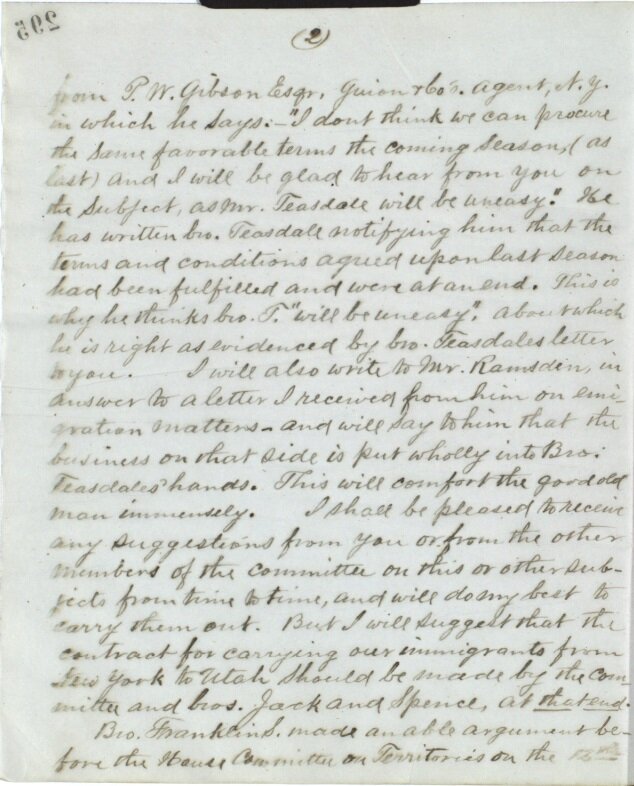 295
(2)
from P. W. Gibson Esqr, Guion & Co's. Agent, N. Y.
in which he says:- "I dont think we can procure
the same favorable terms the coming season, (as
last) and I will be glad to hear from you on
the subject, as Mr. Teasdale will be uneasy." He
has written bro. Teasdale notifying him that the
terms and conditions agreed upon last season
had been fulfilled and were at an end. This is
why he thinks bro. T. "will be uneasy". about which
he is right as evidenced by bro. Teasdales letter
to you. I will also write to Mr. Ramsden, in
answer to a letter I received from him on emi-
gration matters - and will say to him that the
business on that side is put wholly into Bro.
Teasdales' hands. This will comfort the good old
man immensely. I shall be pleased to receive
any suggestions from you or from the other
members of the committee on this or other sub-
jects from time to time, and will do my best to
carry them out. But I will suggest that the
contract for carrying our immigrants from
New York to Utah should be made by the com-
mittee and bros. Jack and Spence, at that end.
Bro. Franklin S. made an able argument be-
fore the House Committee on Territories on the